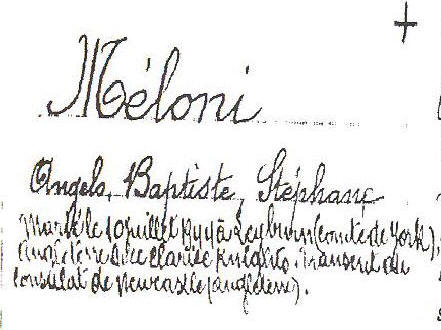 Méloni
Angelo, Baptiste, Stéphane
Marié le juillet à Leyburn (comté de York),
Angleterre avec Clarice Knights. Transcrit au
consulat de Newcastle (angleterre).